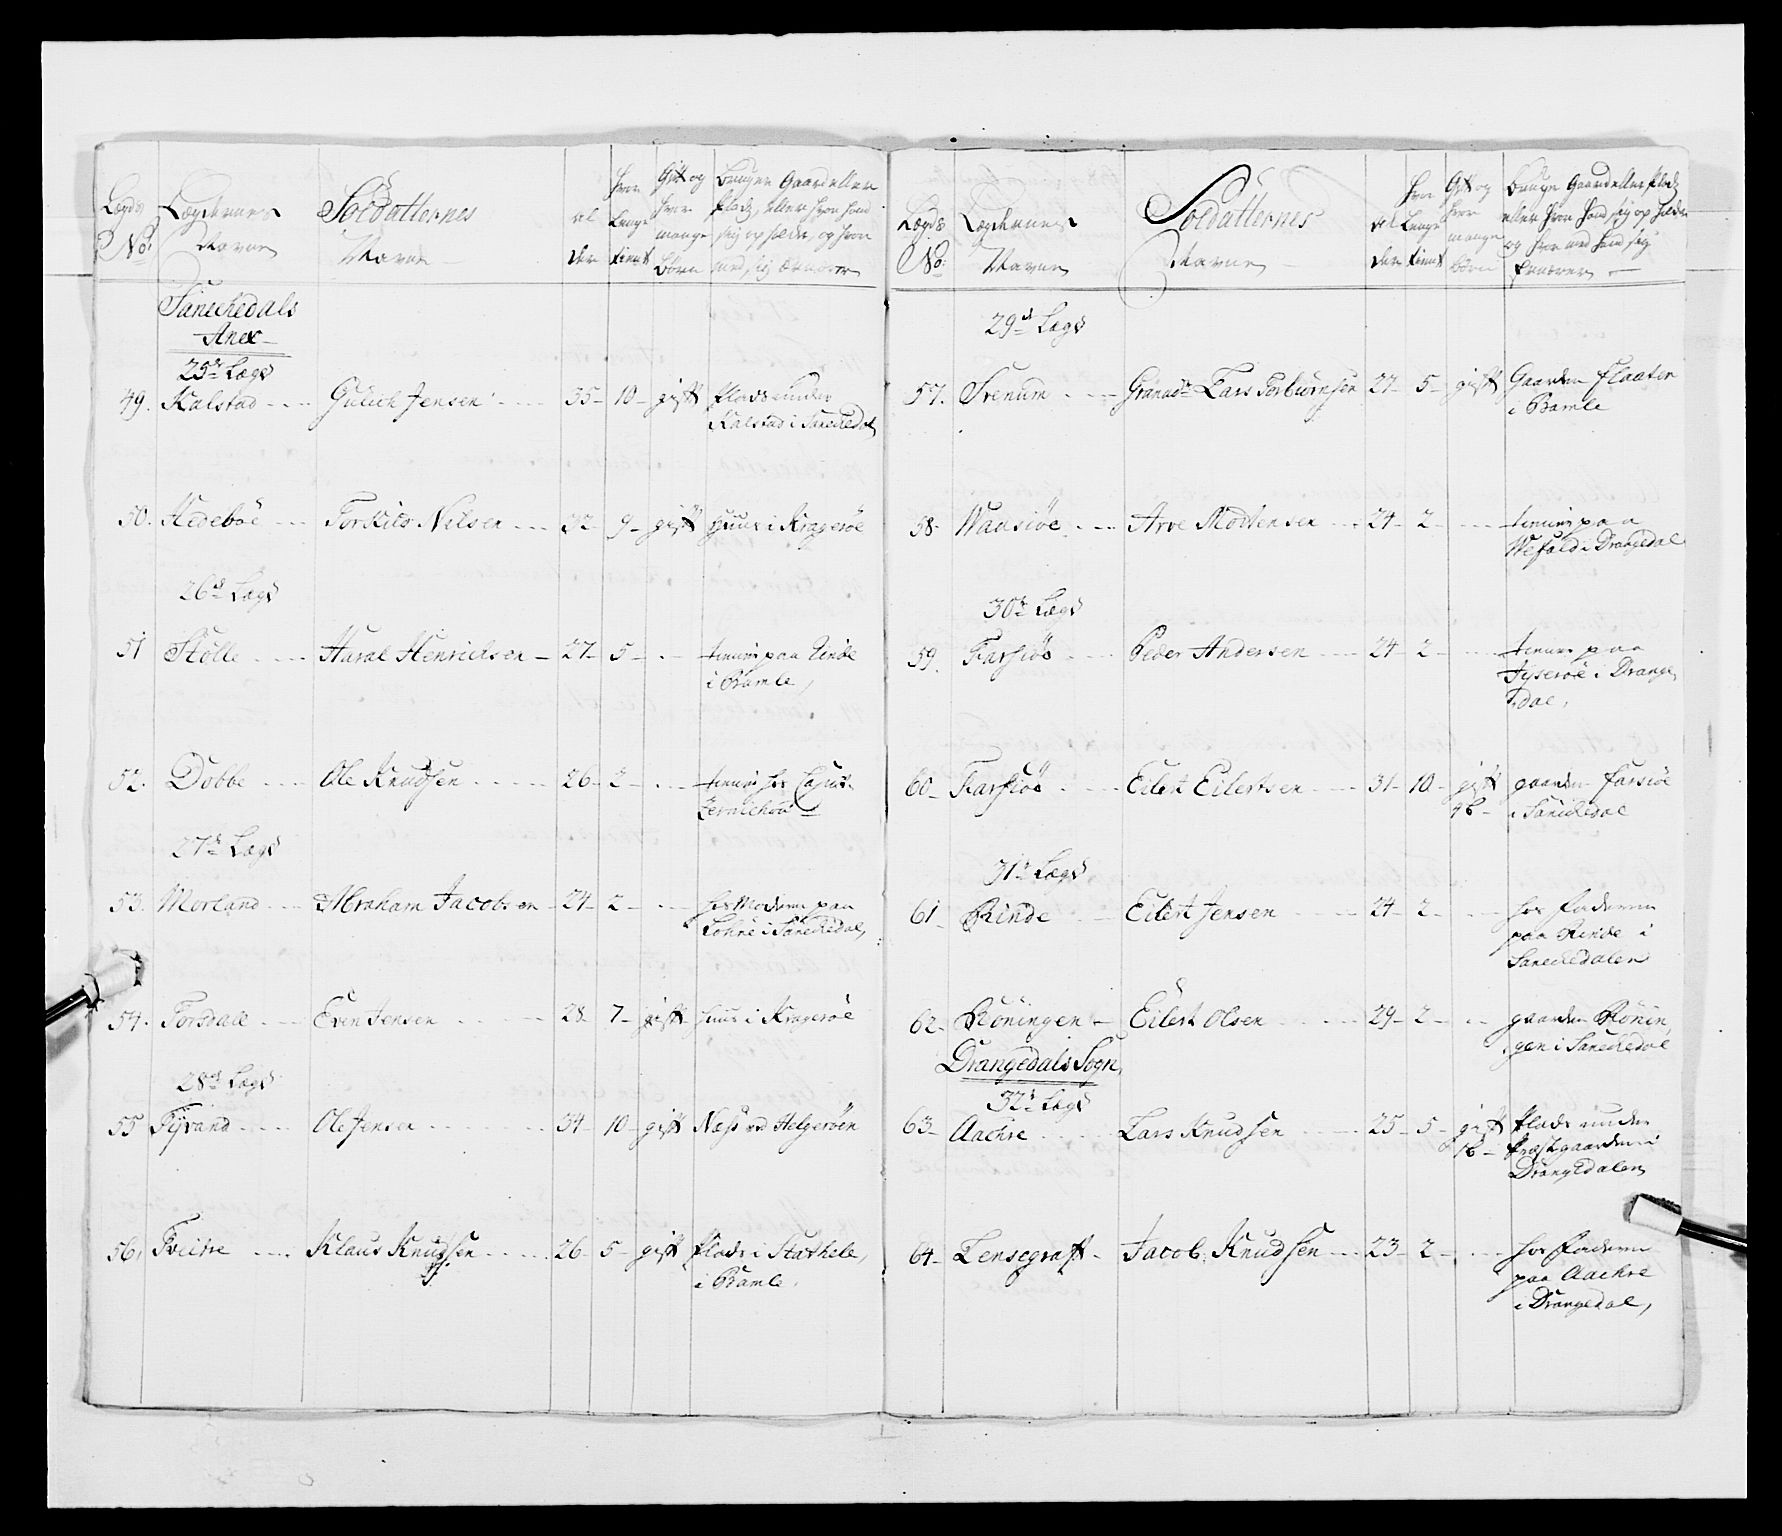 Lægds No:
Lægdernes Navne
Soldatternes Navne
al der
hvor Længe tient
Gift og hvor mange Børn
Bruger Gaard eller Plads, eller hvor hand sig opholder, og hvor med sig Ernærer
Sanechedals
Anex
25de Lægd
49. Kalstad Gulich Jensen 35 10 gift Plads under
Kalstad i Sanechedal
50. Hedebøe Torkild Nilsen 32 9 gift Huus i Kragerøe
26de Lægd
51 Stølle Harald Henrichsen 27 5 tienner paa Rinde
i Bamle
52. Dobbe Ole Knudsen 26 2 tienner hos
27de Lægd
53. Morland Abraham Jacobsen 24 2 hos Moderen paa
i Sanechedal
54. Torsdall Even Jensen 28 7 gift huus i Kragerøe
28de Lægd
55 Tyvand Ole Jensen 34 10 gift Næst ved Helgerøen
56. Tveitre Klaus Knudsen 26 5 gift Plads i Stathele
i Bamle
Lægds No:
Lægdernes Navne
Soldatternes Navne
al der
hvor Længe tient
Gift og hvor mange børn
Bruger Gaard eller Plads eller hvor hand sig opholder og hvor med hand sig Ernærer
29de Lægd
57. Svenum Granadr Lars Torbiørnsen 27 5 gift Gaarden Flaaten
i Bamle
58. Wadsiøe Arve Mortensen 24 2 tienner paa
Wefald i Drangedal
30te Lægd
59. Farsiøe Peder Andersen 24 2 tienner paa
i Drange
dal
60 Farsiøe Eilert Eilertsen 31 10 gift gaarden Farsiøe
4 b i Sanechedal
31te Lægd
61 Rinde Eilert Jensen 24 2 hos faderen
paa Rinde i
Sanechedalen
62 Røningen Eilert Olsen 29 2 gaarden Rønin
gen i Sanechedal
Drangedals Sogn
32te Lægd
63 Aachre Lars Knudsen 25 5 gift Plads under
1 b Præstgaarden i
Drangedalen
64 Lensegraft Jacob Knudsen 23 2 hos faderen
paa Aachre
i Drangedal